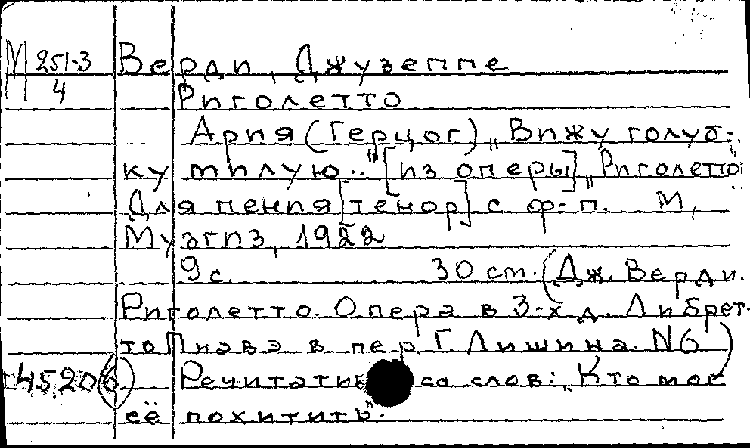 М 251-3 Верди, Джузеппе
4 Риголетто
Ария (Герцог) „Вижу голуб-
ку милую..." [из оперы] „Риголетто
Для пения [тенор] с ф-п. М,
Музгиз, 1922
9 с. 30 cm. (Дж. Верди.
Риголетто. Опера в 3-х д. Либрет-
то Пиавэ в пер. Г. Лишина. N6)
45206 Речитатив со слов: „Кто мог
её похитить".